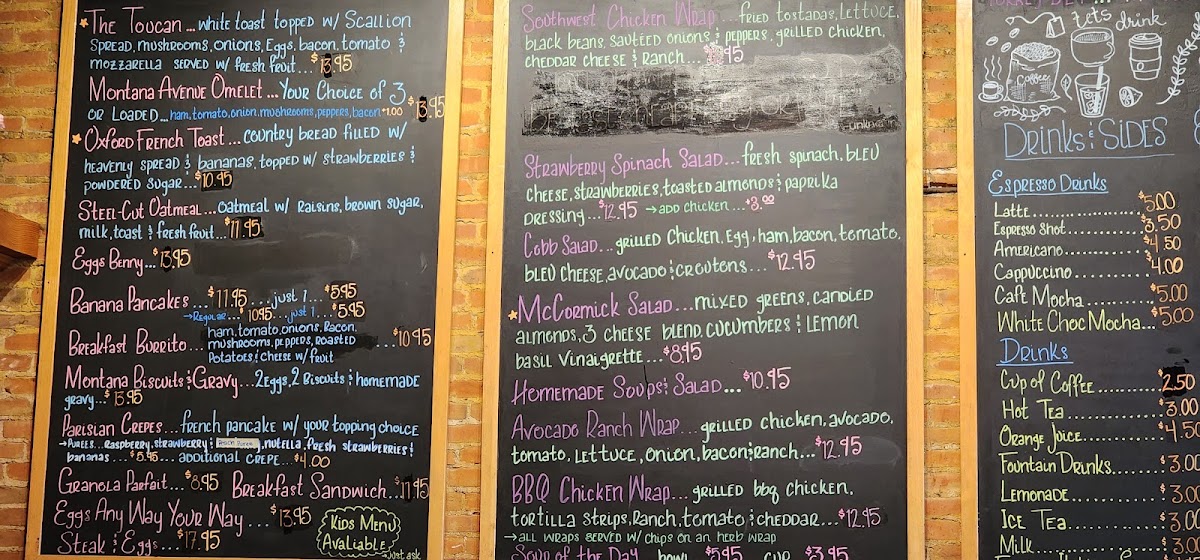 The Toucan...white toast topped w/ Scallion
Spread, mushrooms, onions, Eggs, bacon, tomato &
mozzarella served w/ fresh fruit...$13.95
Montana Avenue Omelet...Your Choice of 3
or Loaded...ham, tomato, onion, mushrooms, peppers, bacon +1.00 $13.95
Oxford French Toast...country bread filled w/
heavenly spread & bananas, topped w/ strawberries &
powdered sugar...$10.95
Steel-Cut Oatmeal...oatmeal w/ Raisins, brown sugar,
milk, toast & fresh fruit...$11.95
Eggs Benny...$13.95
Banana Pancakes...$11.95....just 1...$5.95
→Regular...$10.95...just 1...$5.95
Breakfast Burrito...ham, tomato, onions, Bacon,
mushrooms, peppers, roasted
Potatoes, & cheese w/ fruit ...$10.95
Montana Biscuits & Gravy...2 Eggs, 2 Biscuits & homemade
gravy...$13.95
Parisian Crepes...french pancake w/ your topping choice
→Purees...Raspberry, strawberry & , nutella, fresh strawberries &
bananas...$5.95...additional crepe...$4.00
Granola Parfait...$8.95 Breakfast Sandwich...$11.95
Eggs Any Way Your Way...$13.95
Steak & Eggs...$17.95
Kids Menu
Available
→Just ask
Southwest Chicken Wrap...fried tostadas, lettuce,
black beans, sautéed onions & peppers, grilled chicken,
cheddar cheese & Ranch... .95
Strawberry Spinach Salad...fresh spinach, bleu
cheese, strawberries, toasted almonds & paprika
Dressing...$12.95 →add chicken...$3.00
Cobb Salad...grilled Chicken, Egg, ham, bacon, tomato,
bleu cheese, avocado & croutons...$12.95
McCormick Salad...mixed greens, candied
almonds, 3 cheese blend, cucumbers & Lemon
basil Vinaigrette...$8.95
Homemade Soups & Salad...$10.95
Avocado Ranch Wrap...grilled chicken, avocado,
tomato, lettuce, onion, bacon & ranch...$12.95
BBQ Chicken Wrap...grilled bbq chicken,
tortilla strips, Ranch, tomato & cheddar...$12.95
→all wraps served w/ chips on an herb wrap
Soup of the Day bowl $5.95 cup $3.95
Let's drink
Coffee
Drinks & Sides
Espresso Drinks
Latte...$5.00
Espresso Shot...$3.50
Americano...$4.50
Cappuccino...$4.00
Café Mocha...$5.00
White Choc Mocha...$5.00
Drinks
Cup of Coffee...$2.50
Hot Tea...$3.00
Orange Juice...$4.50
Fountain Drinks...$3.00
Lemonade...$3.00
Ice Tea...$3.00
Milk...$3.00